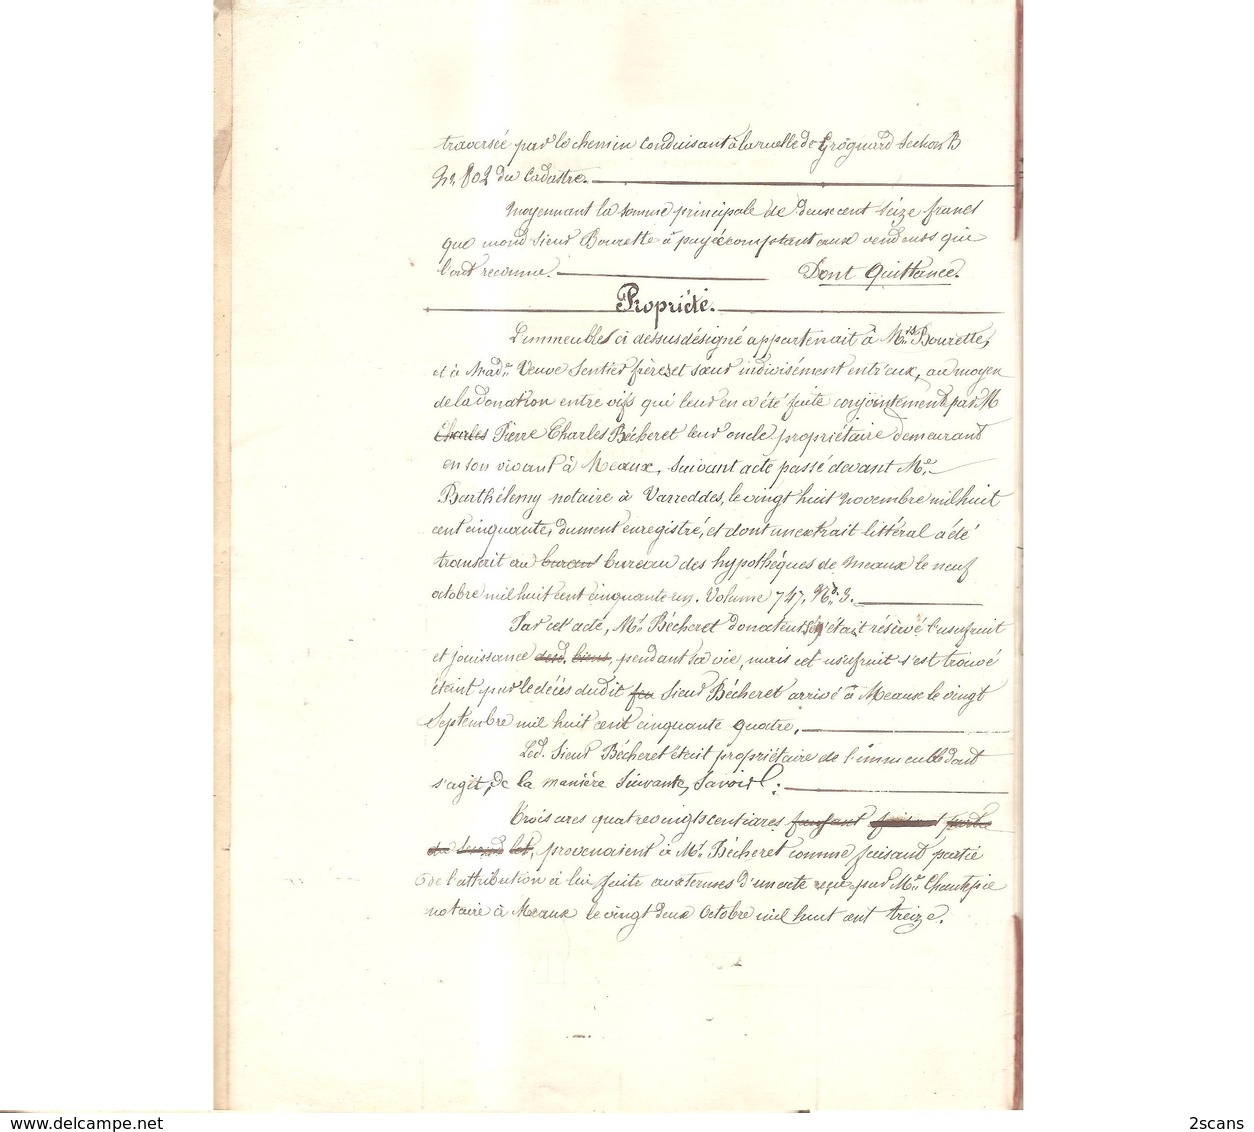 traversée par le chemin conduisant à la ruelle de Grognard Section B
No. 802 du Cadastre.
Moyennant la somme principale de deux cent seize francs
que mond Sieur Bourette a payée comptant aux vendeurs qui
l'ont reconnu. Dont Quittance.
Propriété.
L'immeuble ci dessus désigné appartenait à Mrs Bourette,
et à Made Veuve Sentier frères et sœur indivisément entr'eux, au moyen
de la donation entre vifs qui leur en a été faite conjointement par M
Charles Pierre Charles Bécheret leur oncle propriétaire demeurant
en son vivant à Meaux, suivant acte passé devant Me
Barthélemy notaire à Varreddes, le vingt huit novembre mil huit
cent cinquante, dument enregistré, et dont un extrait littéral a été
transcrit au bureau bureau des hypothéques de Meaux le neuf
octobre mil huit cent cinquante un. Volume 747, No. 3.
Par cet acte, Mr Bécheret donateur s'était réservé l'usufruit
et jouissance desd. biens, pendant sa vie, mais cet usufruit s'est trouvé
éteint par le décès dudit feu Sieur Bécheret arrivé à Meaux le vingt
Septembre mil huit cent cinquante quatre.
Led. Sieur Bécheret était propriétaire de l'immeuble dont
s'agit, de la manière suivante, Savoir :
Trois ares quatre vingts centiares faisant partie
du lot, provenaient à Mr. Bécheret comme faisant partie
de l'attribution à lui faite aux termes d'un acte reçu par Me Chantepie
notaire à Meaux le vingt deux Octobre mil huit cent treize.
2scans